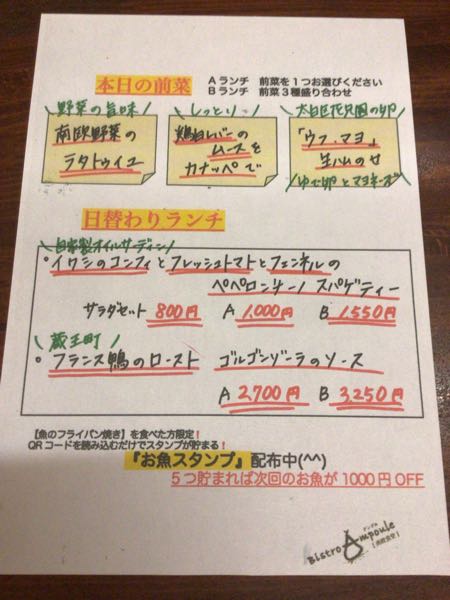 本日の前菜
Aランチ 前菜を1つお選びください
Bランチ 前菜3種盛り合わせ
\ 野菜の旨味 /
南欧野菜の
ラタトゥイユ
\ しっとり /
鶏白レバーの
ムースを
カナッペで
\ 太白区花兄園の卵 /
「ウフ・マヨ」
生ハムのせ
\ゆで卵とマヨネーズ/
日替わりランチ
\ 自家製オイルサーディン /
・イワシのコンフィとフレッシュトマトとフェンネルの
ペペロンチーノ スパゲティー
サラダセット 800円 A 1,000円 B 1,550円
\ 蔵王町 /
・フランス鴨のロースト ゴルゴンゾーラのソース
A 2,700円 B 3,250円
【魚のフライパン焼き】を食べた方限定!
QRコードを読み込むだけでスタンプが貯まる!
『お魚スタンプ』配布中(^^)
5つ貯まれば次回のお魚が1000円OFF
Bistro Ampoule